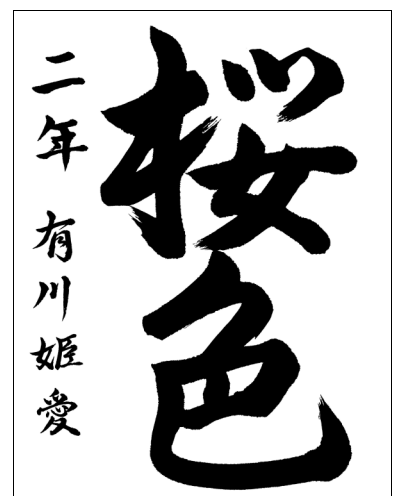 桜色
二年 有川姫愛